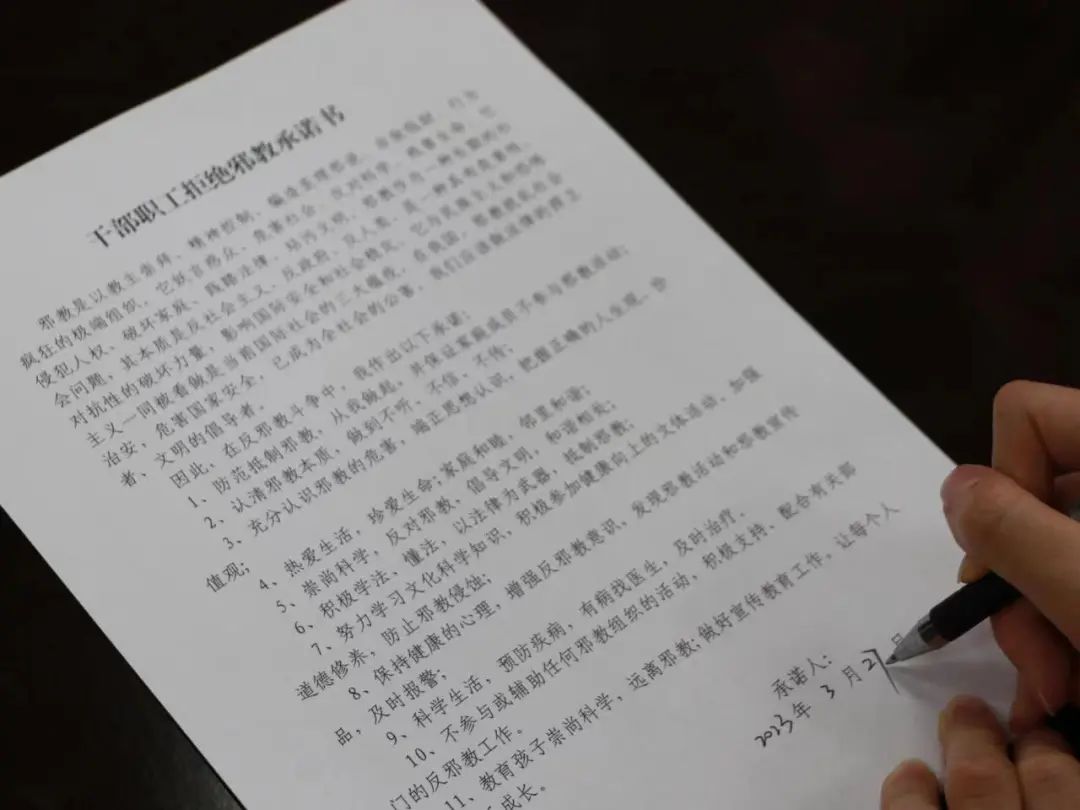 干部职工拒绝邪教承诺书
邪教是以教主崇拜、精神控制、编造歪理邪说、
疯狂的极端组织，它妖言惑众、危害社会、反对科学、残害生命，它
侵犯人权、破坏家庭、践踏法律、玷污文明，邪教作为一种
会问题，其本质是反社会主义、反政府、反人类，是一种具有
对抗性的破坏力量，影响国际安全和社会稳定，它与民族主义和恐怖
主义一同被看做是当前国际社会的三大瘟疫，在我国，邪教扰乱社会
治安，危害国家安全，已成为全社会的公害，我们应该做法律的捍卫
者、文明的倡导者。
因此，在反邪教斗争中，我作出以下承诺：
1、防范抵制邪教，从我做起，并保证家庭成员子不参与邪教活动；
2、认清邪教本质，做到不听、不信、不传；
3、充分认识邪教的危害，端正思想认识，把握正确的人生观、价
值观；
4、热爱生活，珍爱生命；家庭和睦，邻里和谐；
5、崇尚科学，反对邪教，倡导文明，和谐相处；
6、积极学法、懂法，以法律为武器，抵制邪教；
7、努力学习文化科学知识，积极参加健康向上的文体活动，加强
道德修养，防止邪教侵蚀；
8、保持健康的心理，增强反邪教意识，发现邪教活动和邪教宣传
品，及时报警；
9、科学生活，预防疾病，有病找医生，及时治疗。
10、不参与或辅助任何邪教组织的活动，积极支持、配合有关部
门的反邪教工作。
11、教育孩子崇尚科学，远离邪教；做好宣传教育工作，让每个人
成长。
承诺人：
2023年 3 月 2 日